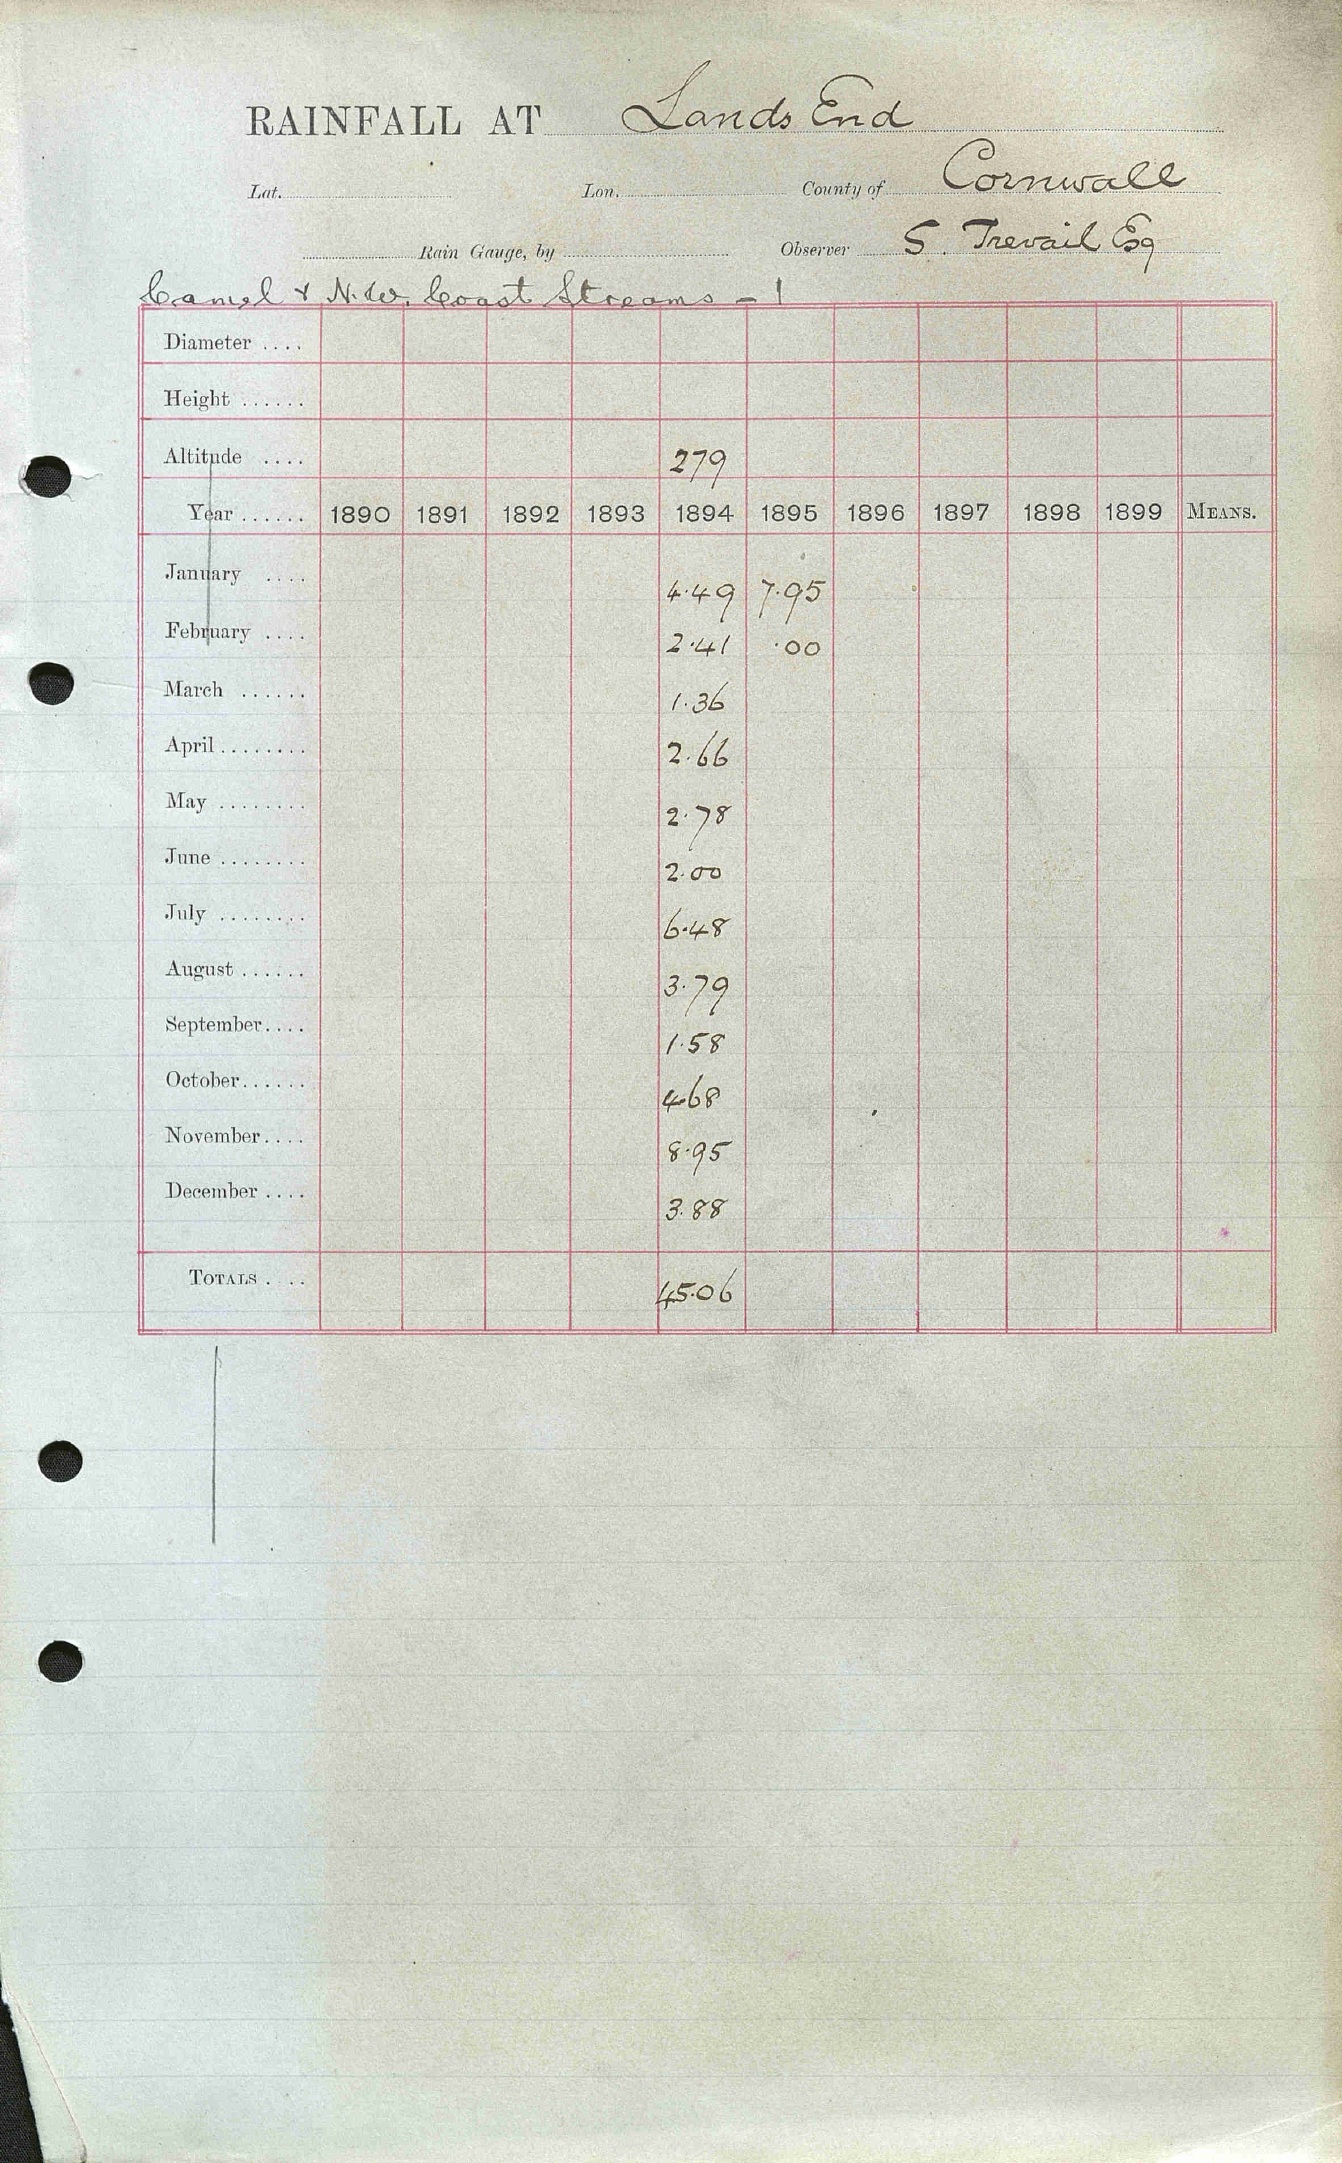 RAINFALL AT Lands End
Lat. Lon. County of Cornwall
Rain Gauge, by Observer S. Trevail Esq
Camel & N.W. Coast Streams - 1
Diameter ....
Height ......
Altitude .... 279
Year ...... 1890 1891 1892 1893 1894 1895 1896 1897 1898 1899 MEANS.
January .... 4.49 7.95
February .... 2.41 .00
March ...... 1.36
April ........ 2.66
May ........ 2.78
June ........ 2.00
July ........ 6.48
August ...... 3.79
September.... 1.58
October...... 468
November.... 8.95
December .... 3.88
TOTALS . .. 45.06